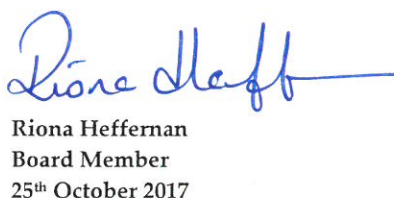 Ríona Heff
Riona Heffernan
Board Member
25th October 2017